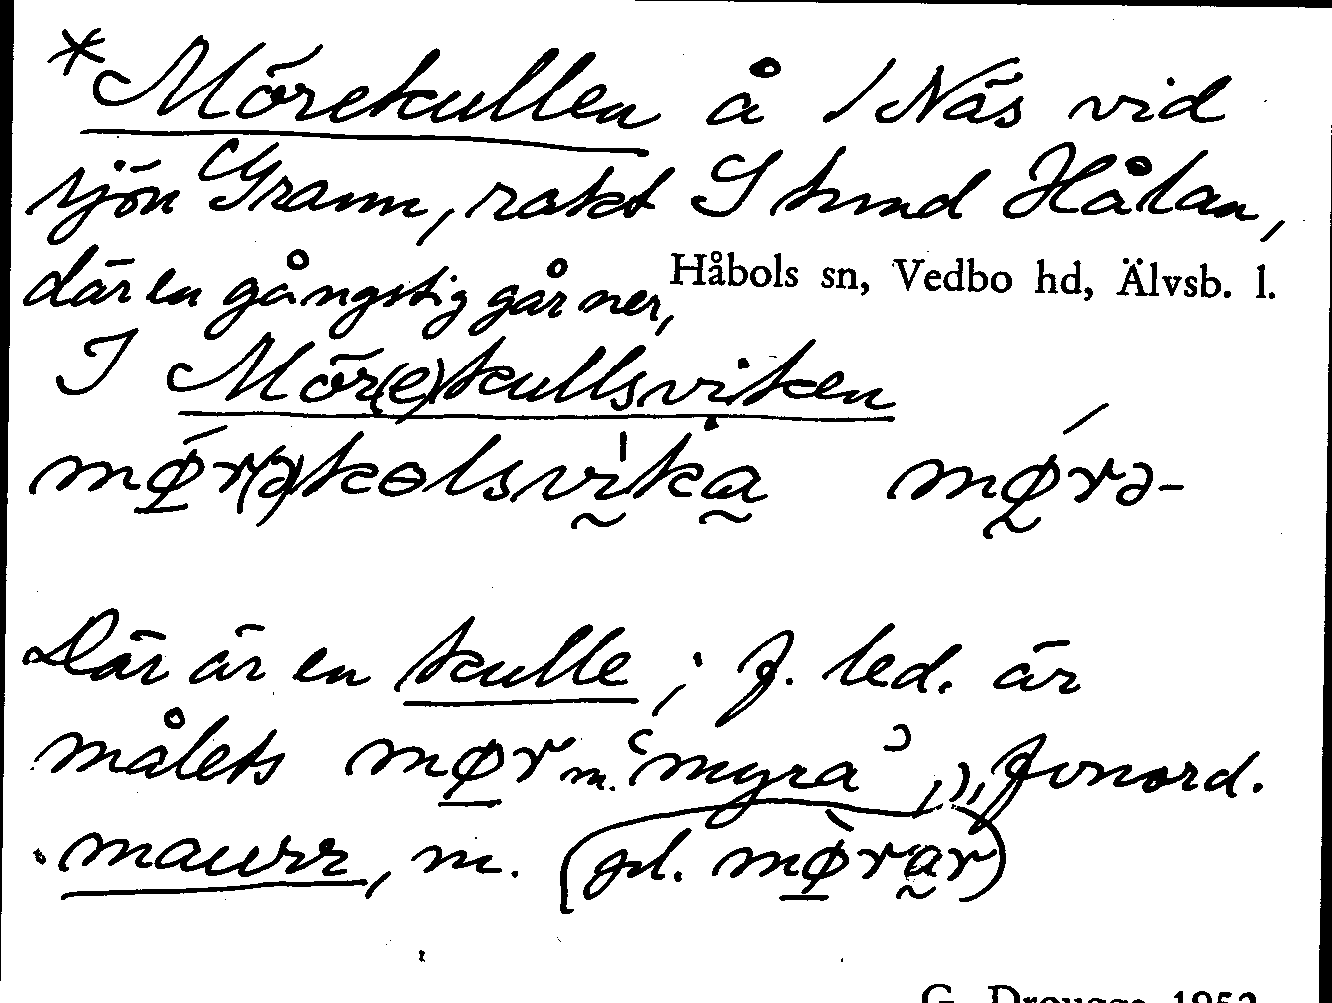 *Mörekullen å 1 Näs vid
sjön Grann, rakt S hund Hålan,
där en gångstig går ner,
Håbols sn, Vedbo hd, Älvsb. l.
I Mör(e)kullsviken
mø̱r(ə)kolsvika mørə-
Där är en kulle; f. led. är
målets mø̱r m. 'myra', fvnord.
maurr, m. (pl. mø̱rar)
G. Drougge 1952